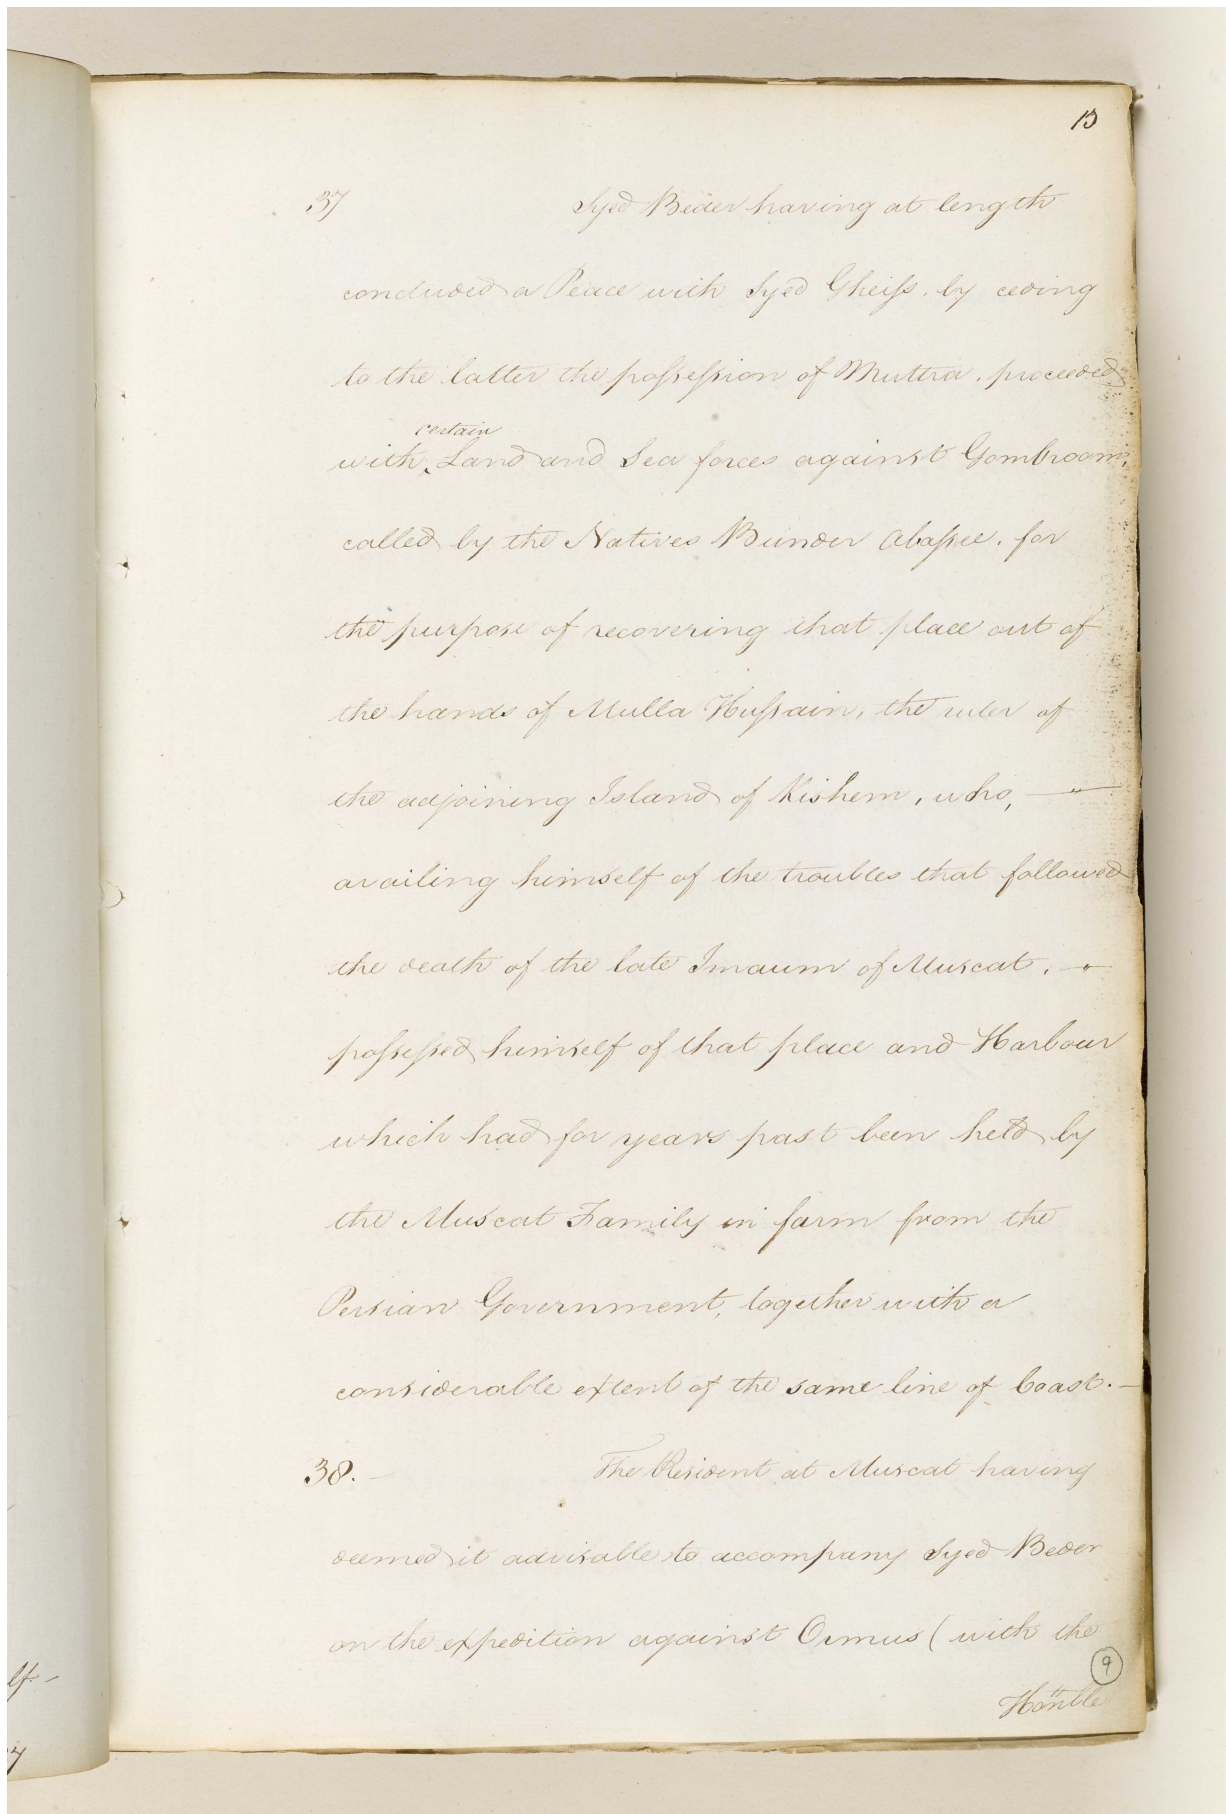 13
37 Syed Beder having at length
concluded a Peace with Syed Gheiss, by ceding
to the latter the possession of Muttra, proceeded
certain
with Land and Sea forces against Gombroom,
called by the Natives Bunder Abassee, for
the purpose of recovering that place out of
the hands of Mulla Hussain, the ruler of
the adjoining Island of Kishem, who,
availing himself of the troubles that followed
the death of the late Imaum of Muscat,
possessed himself of that place and Harbour
which had for years past been held by
the Muscat Family in farm from the
Persian Government, together with a
considerable extent of the same line of Coast.—
38.— The Resident at Muscat having
deemed it advisable to accompany Syed Beder
on the expedition against Ormus (with the
9
Honble